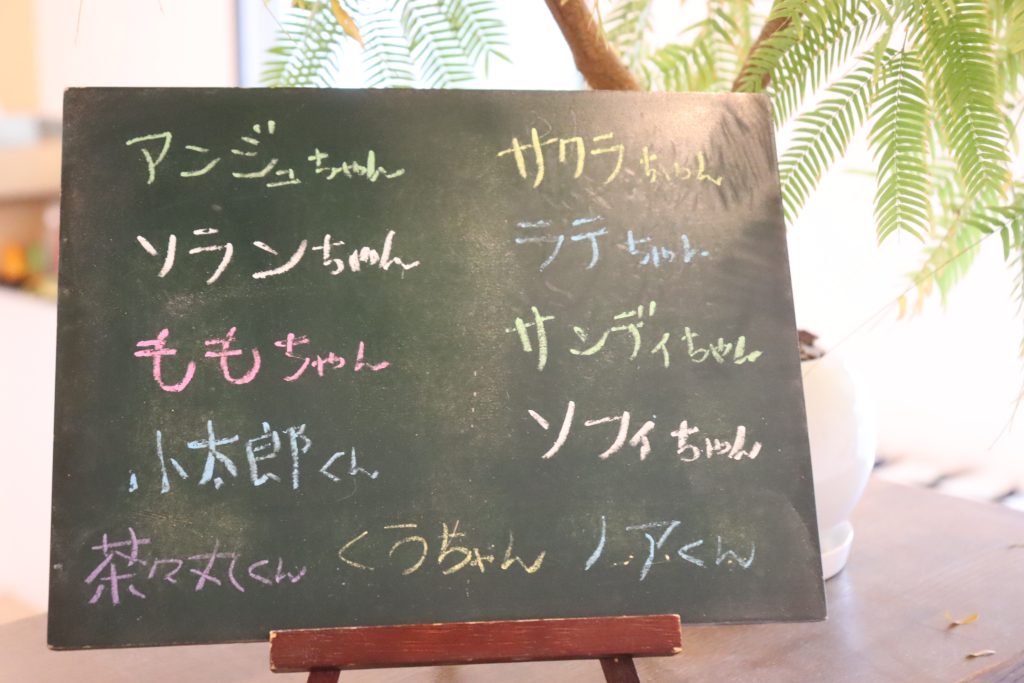 アンジュちゃん
サクラちゃん
ソランちゃん
ラテちゃん
ももちゃん
サンディちゃん
小太郎くん
ソフィちゃん
茶々丸くん
くうちゃん
ノアくん